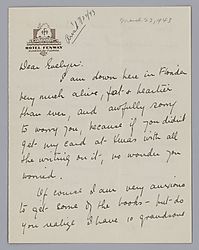 March 23, 1943
HOTEL FENWAY
Dear Evelyn:
I am down here in Florida
very much alive, fat & heartier
than ever, and awfully sorry
to worry you, because if you didn't
get my card at Xmas with all
the writing on it, no wonder you
worried.
Of course I am very anxious
to get some of the books - but - do
you realize I have 10 grandsons